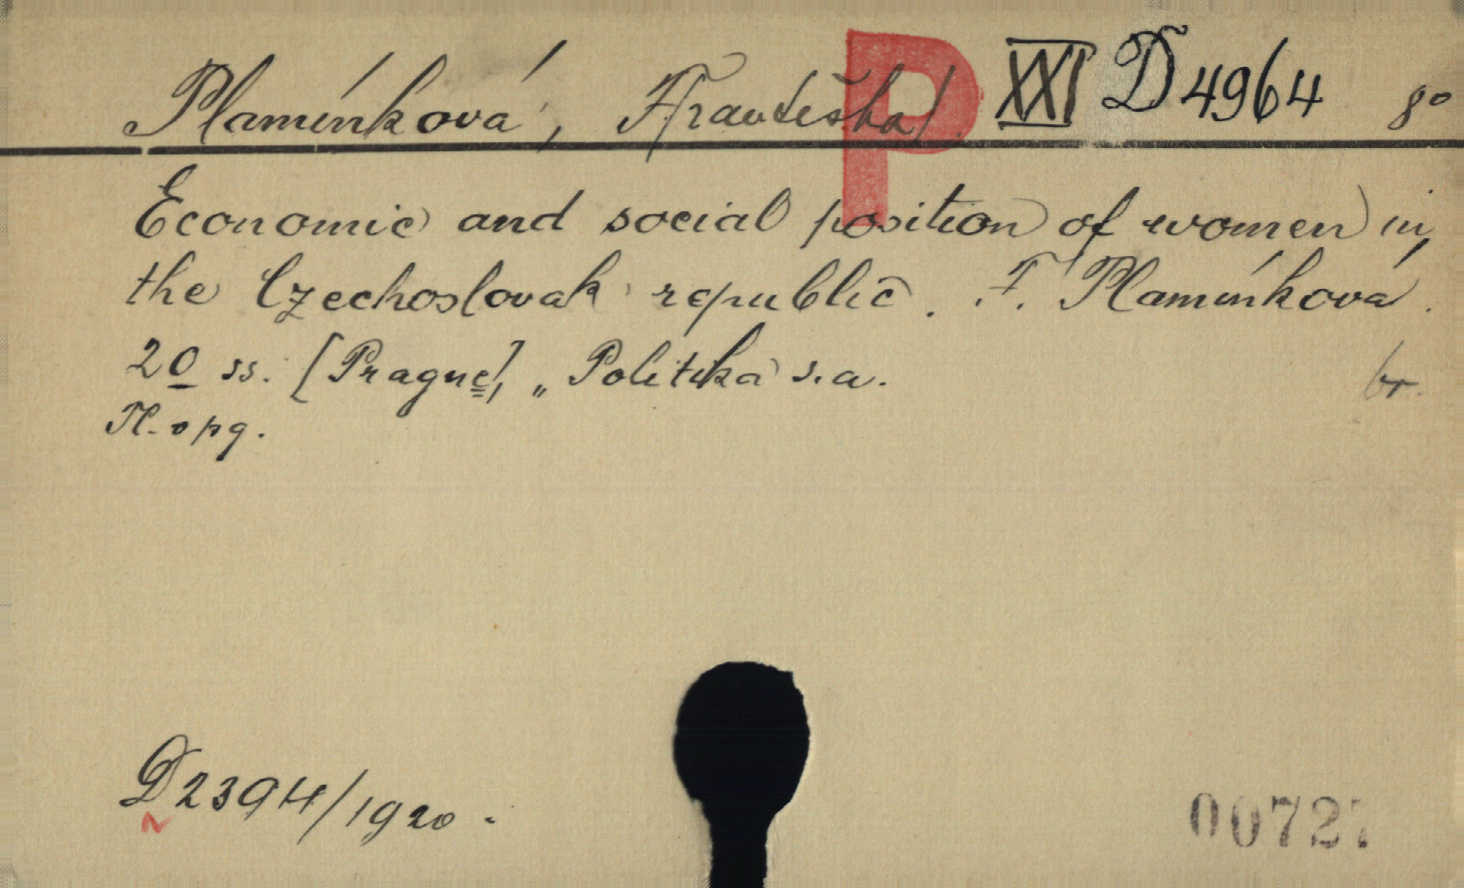 Plamínková, Františka P XXI D 4964 8°
Economic and social position of women in
the Czechoslovak republic. F. Plamínková.
20 ss. [Prague], „Politika" s.a. br.
Pl. opg.
D 2394/1920.
00727